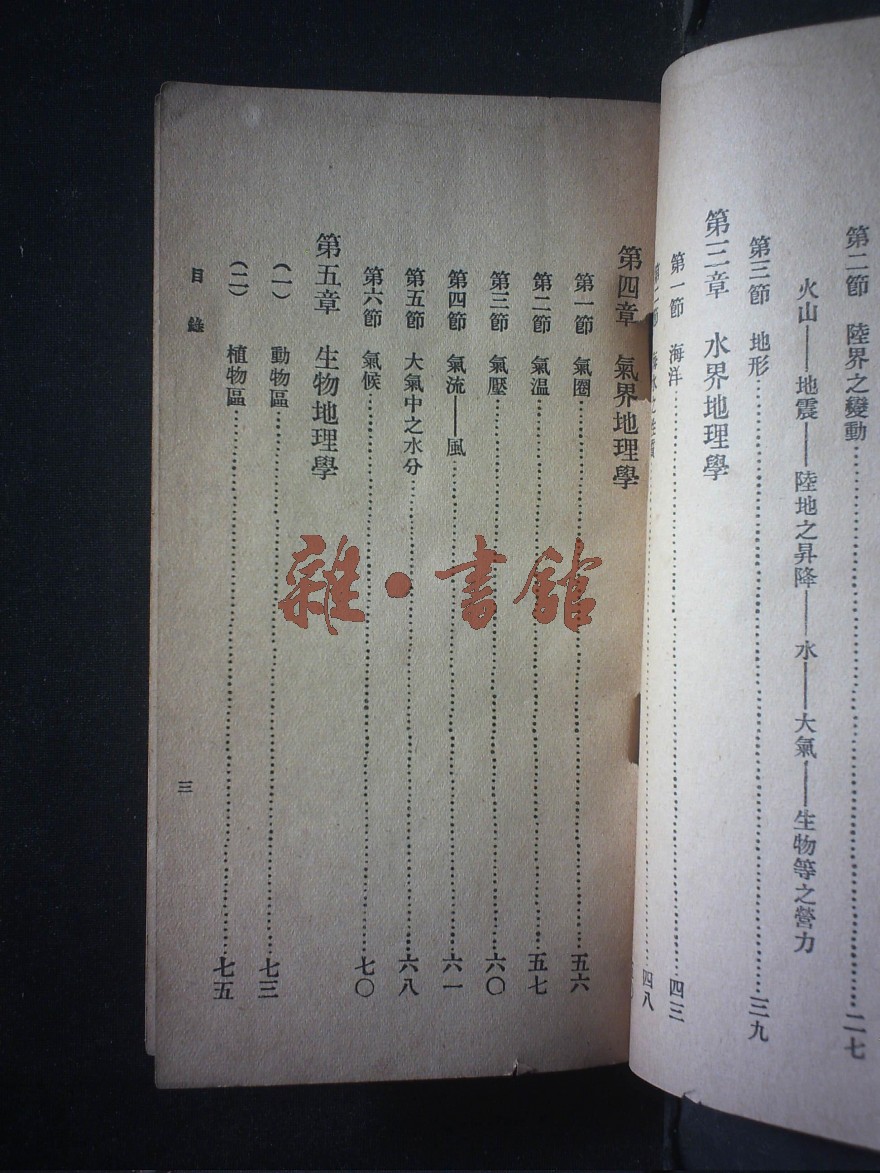 第二節　陸界之變動……二七
火山——地震——陸地之昇降——水——大氣——生物等之營力
第三節　地形……三九
第三章　水界地理學
第一節　海洋……四三
四八
第四章　氣界地理學
第一節　氣圈……五六
第二節　氣温……五七
第三節　氣壓……六〇
第四節　氣流——風……六一
第五節　大氣中之水分……六八
第六節　氣候……七〇
第五章　生物地理學
（一）　動物區……七三
（二）　植物區……七五
目錄
三
雜·書館